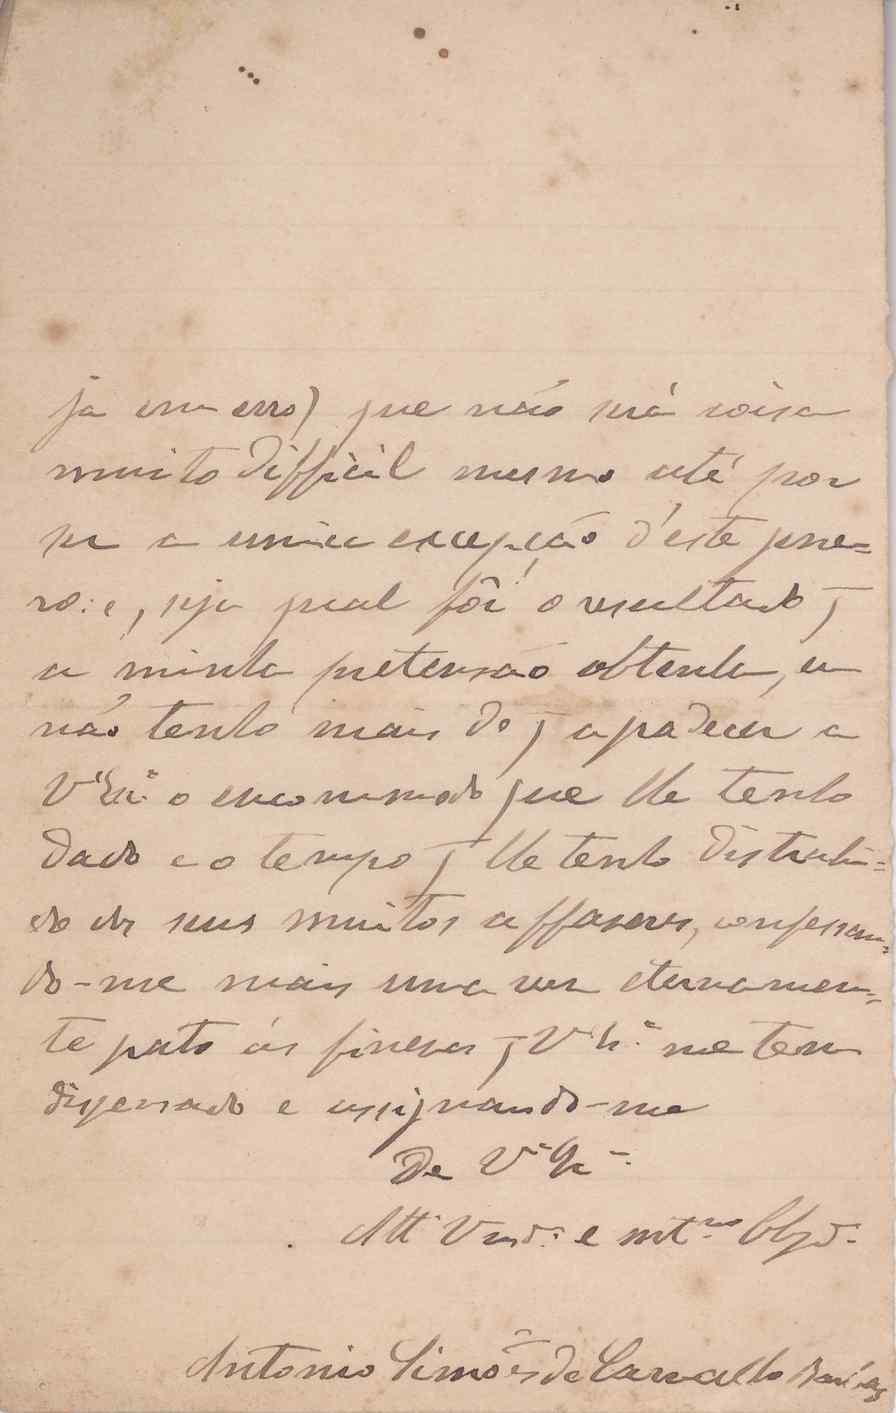 ja um erro) que não será coisa
muito difficil mesmo até por
ser a unica excepção d'este gene=
ro: e, seja qual fôr o resultado q̄
a minha pretensão obtenha, eu
não tenho mais do q̄ agradecer a
V.ª Ex.ª o encommodo que lhe tenho
dado e o tempo q̄ lhe tenho distrahi=
do dos seus muitos affaseres, confessan=
do-me mais uma vez eternamen=
te grato ás finesas q̄ V.ª Ex.ª me tem
dispensado e assignando-me
De V.ª Ex.ª
Att.º Vnd.or e mt.mo Obgd.º
Antonio Simões de Carvalho